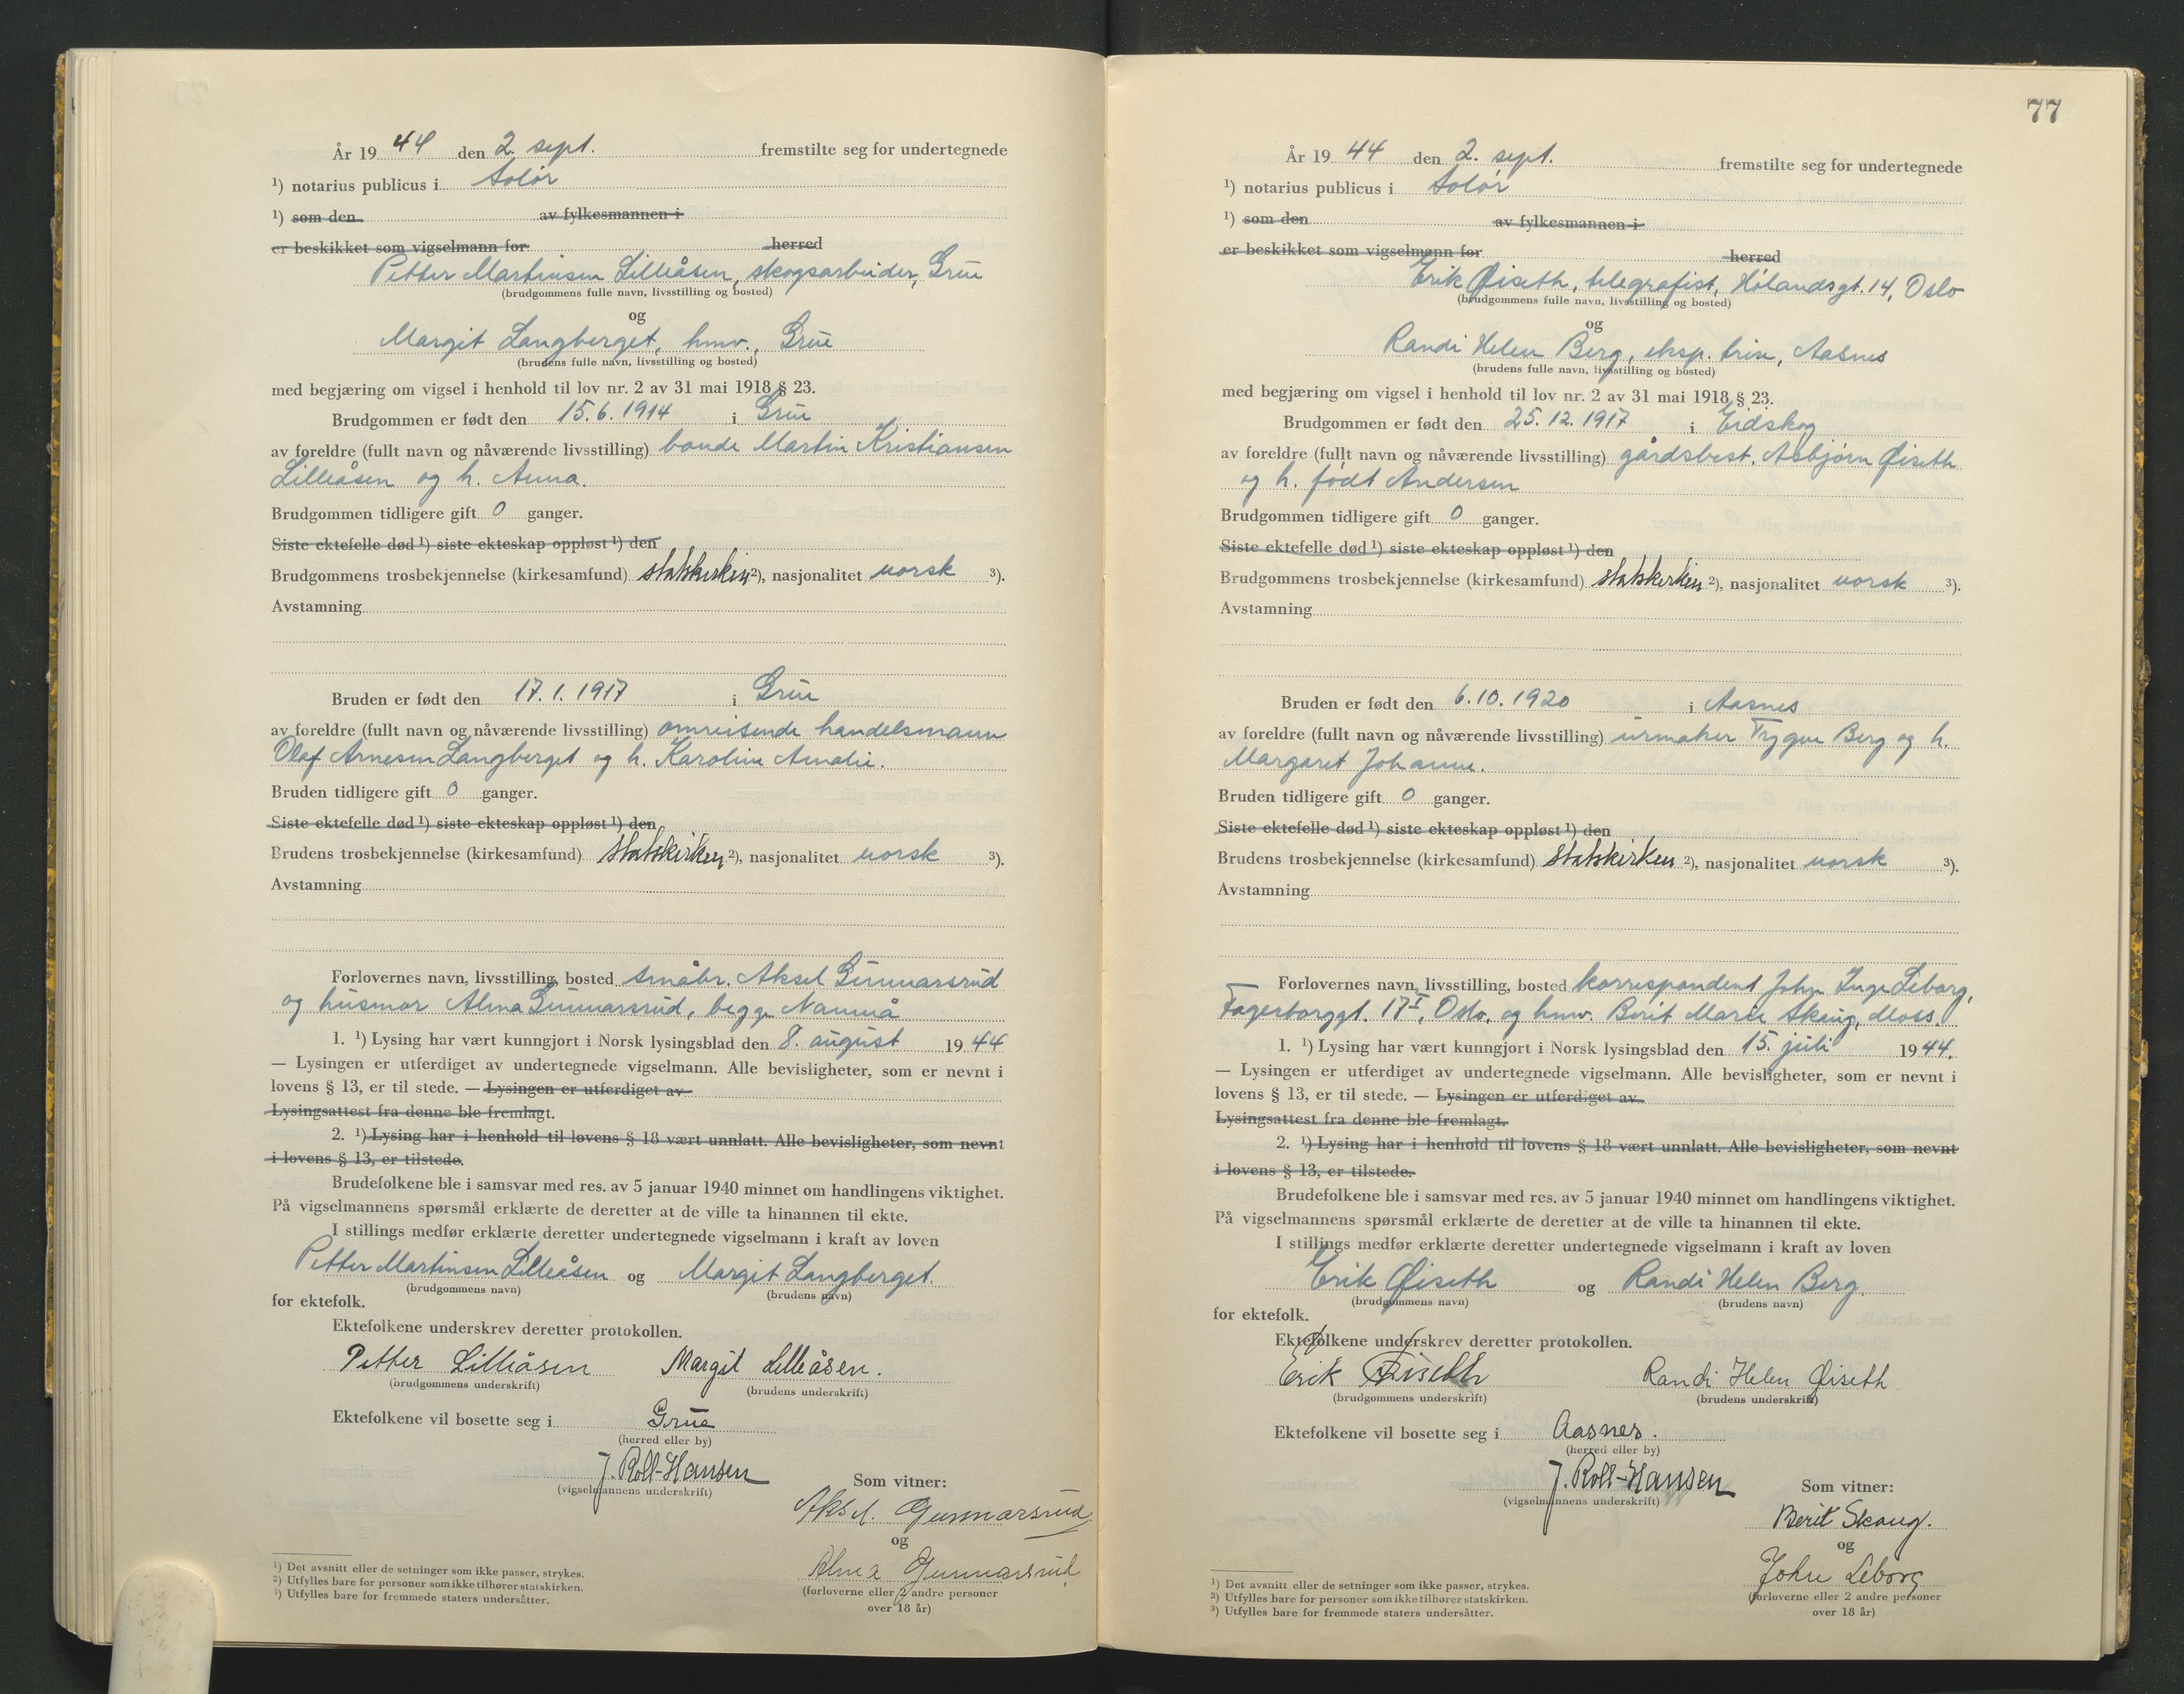 År 19 44 den 2. sept. fremstilte seg for undertegnede
¹) notarius publicus i Solør
¹) som den av fylkesmannen i
er beskikket som vigselmann for herred
Petter Martinsen Lilleåsen, skogsarbeider, Grue
(brudgommens fulle navn, livsstilling og bosted)
og
Margit Langberget, hmv., Grue
(brudens fulle navn, livsstilling og bosted)
med begjæring om vigsel i henhold til lov nr. 2 av 31 mai 1918 § 23.
Brudgommen er født den 15.6.1914 i Grue
av foreldre (fullt navn og nåværende livsstilling) bonde Martin Kristiansen
Lilleåsen og h. Anna.
Brudgommen tidligere gift 0 ganger.
Siste ektefelle død ¹) siste ekteskap oppløst ¹) den
Brudgommens trosbekjennelse (kirkesamfund) statskirken ²), nasjonalitet norsk ³).
Avstamning
Bruden er født den 17.1.1917 i Grue
av foreldre (fullt navn og nåværende livsstilling) omreisende handelsmann
Olaf Arnesen Langberget og h. Karoline Amalie.
Bruden tidligere gift 0 ganger.
Siste ektefelle død ¹) siste ekteskap oppløst ¹) den
Brudens trosbekjennelse (kirkesamfund) statskirken ²), nasjonalitet norsk ³).
Avstamning
Forlovernes navn, livsstilling, bosted småbr. Aksel Gunnarsrud
og husmor Alma Gunnarsrud, begge Namnå
1. ¹) Lysing har vært kunngjort i Norsk lysingsblad den 8. august 19 44
— Lysingen er utferdiget av undertegnede vigselmann. Alle bevisligheter, som er nevnt i
lovens § 13, er til stede. — Lysingen er utferdiget av
Lysingsattest fra denne ble fremlagt.
2. ¹) Lysing har i henhold til lovens § 18 vært unnlatt. Alle bevisligheter, som nevnt
i lovens § 13, er tilstede.
Brudefolkene ble i samsvar med res. av 5 januar 1940 minnet om handlingens viktighet.
På vigselmannens spørsmål erklærte de deretter at de ville ta hinannen til ekte.
I stillings medfør erklærte deretter undertegnede vigselmann i kraft av loven
Petter Martinsen Lilleåsen og Margit Langberget
(brudgommens navn) (brudens navn)
for ektefolk.
Ektefolkene underskrev deretter protokollen.
Petter Lilleåsen Margit Lilleåsen.
(brudgommens underskrift) (brudens underskrift)
Ektefolkene vil bosette seg i Grue
(herred eller by)
J. Roll-Hansen
(vigselmannens underskrift)
Som vitner:
Aksel Gunnarsrud
og
Alma Gunnarsrud
(forloverne eller 2 andre personer
over 18 år)
¹) Det avsnitt eller de setninger som ikke passer, strykes.
²) Utfylles bare for personer som ikke tilhører statskirken.
³) Utfylles bare for fremmede staters undersåtter.
77
År 19 44 den 2. sept. fremstilte seg for undertegnede
¹) notarius publicus i Solør
¹) som den av fylkesmannen i
er beskikket som vigselmann for herred
Erik Øiseth, telegrafist, Hølandsgt. 14, Oslo
(brudgommens fulle navn, livsstilling og bosted)
og
Randi Helen Berg, eksp. trise, Aasnes
(brudens fulle navn, livsstilling og bosted)
med begjæring om vigsel i henhold til lov nr. 2 av 31 mai 1918 § 23.
Brudgommen er født den 25.12.1917 i Eidskog
av foreldre (fullt navn og nåværende livsstilling) gårdsbest. Asbjørn Øiseth
og h. født Andersen
Brudgommen tidligere gift 0 ganger.
Siste ektefelle død ¹) siste ekteskap oppløst ¹) den
Brudgommens trosbekjennelse (kirkesamfund) statskirken ²), nasjonalitet norsk ³).
Avstamning
Bruden er født den 6.10.1920 i Aasnes
av foreldre (fullt navn og nåværende livsstilling) urmaker Trygve Berg og h.
Margaret Johanne.
Bruden tidligere gift 0 ganger.
Siste ektefelle død ¹) siste ekteskap oppløst ¹) den
Brudens trosbekjennelse (kirkesamfund) statskirken ²), nasjonalitet norsk ³).
Avstamning
Forlovernes navn, livsstilling, bosted korrespondent John Inge Leborg,
Fagerborggt. 17 I, Oslo, og hmv. Berit Marie Skaug, Moss.
1. ¹) Lysing har vært kunngjort i Norsk lysingsblad den 15. juli 19 44.
— Lysingen er utferdiget av undertegnede vigselmann. Alle bevisligheter, som er nevnt i
lovens § 13, er til stede. — Lysingen er utferdiget av
Lysingsattest fra denne ble fremlagt.
2. ¹) Lysing har i henhold til lovens § 18 vært unnlatt. Alle bevisligheter, som nevnt
i lovens § 13, er tilstede.
Brudefolkene ble i samsvar med res. av 5 januar 1940 minnet om handlingens viktighet.
På vigselmannens spørsmål erklærte de deretter at de ville ta hinannen til ekte.
I stillings medfør erklærte deretter undertegnede vigselmann i kraft av loven
Erik Øiseth og Randi Helen Berg.
(brudgommens navn) (brudens navn)
for ektefolk.
Ektefolkene underskrev deretter protokollen.
Erik Øiseth Randi Helen Øiseth
(brudgommens underskrift) (brudens underskrift)
Ektefolkene vil bosette seg i Aasnes.
(herred eller by)
J. Roll-Hansen
(vigselmannens underskrift)
Som vitner:
Berit Skaug.
og
John Leborg
(forloverne eller 2 andre personer
over 18 år)
¹) Det avsnitt eller de setninger som ikke passer, strykes.
²) Utfylles bare for personer som ikke tilhører statskirken.
³) Utfylles bare for fremmede staters undersåtter.